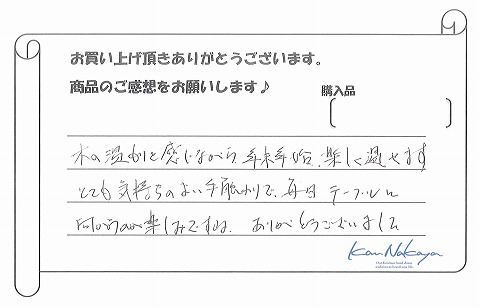 お買い上げ頂きありがとうございます。
商品のご感想をお願いします♪
購入品
木の温かりを感じながら、年末年始、楽しく過せます
とても気持ちのよい手触わりで、毎日 テーブルに
向かうのが楽しみですね。ありがとうございました
KanNakaya